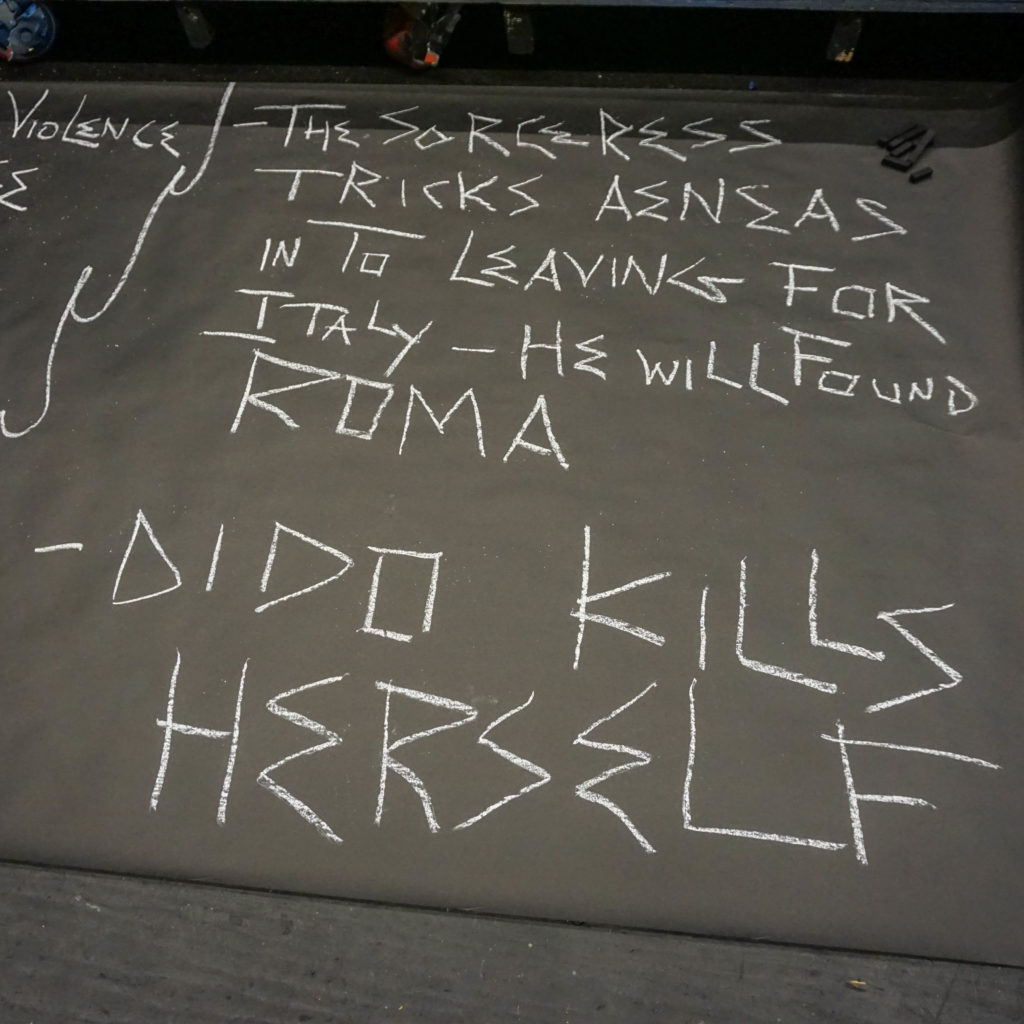 VIOLENCE
- THE SORCERESS
TRICKS AENEAS
IN TO LEAVING FOR
ITALY - HE WILL FOUND
ROMA
- DIDO KILLS
HERSELF